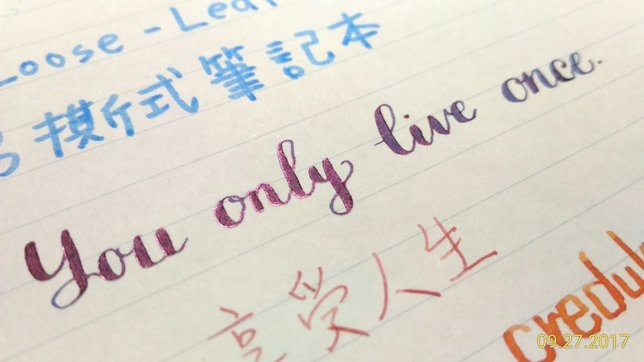 Loose - Leaf
撕式筆記本
You only live once.
享受人生
credul
09.27.2017